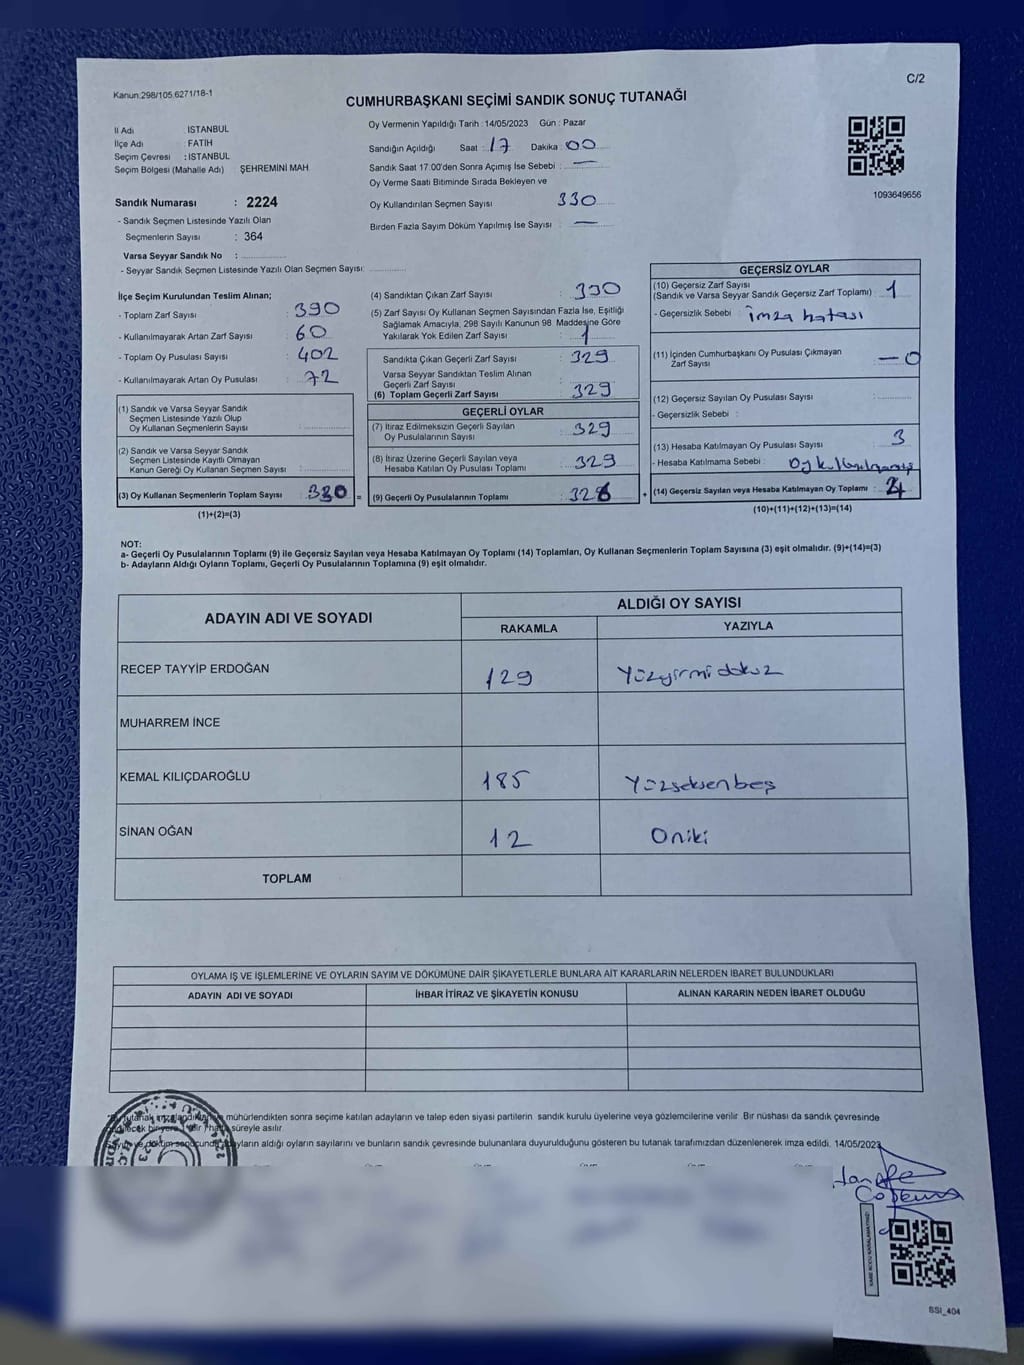 Kanun:298/105.6271/18-1
C/2
CUMHURBAŞKANI SEÇİMİ SANDIK SONUÇ TUTANAĞI
İl Adı : İSTANBUL
İlçe Adı : FATİH
Seçim Çevresi : İSTANBUL
Seçim Bölgesi (Mahalle Adı) ŞEHREMİNİ MAH.
Oy Vermenin Yapıldığı Tarih :14/05/2023 Gün : Pazar
Sandığın Açıldığı Saat : 17 Dakika : 00
Sandık Saat 17:00'den Sonra Açımış İse Sebebi : —
Oy Verme Saati Bitiminde Sırada Bekleyen ve
Oy Kullandırılan Seçmen Sayısı 330
Birden Fazla Sayım Döküm Yapılmış İse Sayısı : —
1093649656
Sandık Numarası : 2224
- Sandık Seçmen Listesinde Yazılı Olan
Seçmenlerin Sayısı : 364
Varsa Seyyar Sandık No :
- Seyyar Sandık Seçmen Listesinde Yazılı Olan Seçmen Sayısı:
İlçe Seçim Kurulundan Teslim Alınan;
- Toplam Zarf Sayısı : 390
- Kullanılmayarak Artan Zarf Sayısı : 60
- Toplam Oy Pusulası Sayısı : 402
- Kullanılmayarak Artan Oy Pusulası : 72
(1) Sandık ve Varsa Seyyar Sandık
Seçmen Listesinde Yazılı Olup
Oy Kullanan Seçmenlerin Sayısı :
(2) Sandık ve Varsa Seyyar Sandık
Seçmen Listesinde Kayıtlı Olmayan
Kanun Gereği Oy Kullanan Seçmen Sayısı :
(3) Oy Kullanan Seçmenlerin Toplam Sayısı : 330 =
(1)+(2)=(3)
(4) Sandıktan Çıkan Zarf Sayısı : 330
(5) Zarf Sayısı Oy Kullanan Seçmen Sayısından Fazla İse, Eşitliği
Sağlamak Amacıyla, 298 Sayılı Kanunun 98. Maddesine Göre
Yakılarak Yok Edilen Zarf Sayısı : 1
Sandıkta Çıkan Geçerli Zarf Sayısı : 329
Varsa Seyyar Sandıktan Teslim Alınan
Geçerli Zarf Sayısı
(6) Toplam Geçerli Zarf Sayısı : 329
GEÇERLİ OYLAR
(7) İtiraz Edilmeksizin Geçerli Sayılan
Oy Pusulalarının Sayısı : 329
(8) İtiraz Üzerine Geçerli Sayılan veya
Hesaba Katılan Oy Pusulası Toplamı : 329
(9) Geçerli Oy Pusulalarının Toplamı : 326 +
GEÇERSİZ OYLAR
(10) Geçersiz Zarf Sayısı
(Sandık ve Varsa Seyyar Sandık Geçersiz Zarf Toplamı) : 1
- Geçersizlik Sebebi : İmza hatası
(11) İçinden Cumhurbaşkanı Oy Pusulası Çıkmayan
Zarf Sayısı — 0
(12) Geçersiz Sayılan Oy Pusulası Sayısı :
- Geçersizlik Sebebi :
(13) Hesaba Katılmayan Oy Pusulası Sayısı : 3
- Hesaba Katılmama Sebebi : Oy
(14) Geçersiz Sayılan veya Hesaba Katılmayan Oy Toplamı : 4
(10)+(11)+(12)+(13)=(14)
NOT:
a- Geçerli Oy Pusulalarının Toplamı (9) ile Geçersiz Sayılan veya Hesaba Katılmayan Oy Toplamı (14) Toplamları, Oy Kullanan Seçmenlerin Toplam Sayısına (3) eşit olmalıdır. (9)+(14)=(3)
b- Adayların Aldığı Oyların Toplamı, Geçerli Oy Pusulalarının Toplamına (9) eşit olmalıdır.
ADAYIN ADI VE SOYADI
ALDIĞI OY SAYISI
RAKAMLA YAZIYLA
RECEP TAYYİP ERDOĞAN 129 Yüzyirmidokuz
MUHARREM İNCE
KEMAL KILIÇDAROĞLU 185 Yüzseksenbeş
SİNAN OĞAN 12 Oniki
TOPLAM
OYLAMA İŞ VE İŞLEMLERİNE VE OYLARIN SAYIM VE DÖKÜMÜNE DAİR ŞİKAYETLERLE BUNLARA AİT KARARLARIN NELERDEN İBARET BULUNDUKLARI
ADAYIN ADI VE SOYADI İHBAR İTİRAZ VE ŞİKAYETİN KONUSU ALINAN KARARIN NEDEN İBARET OLDUĞU
mühürlendikten sonra seçime katılan adayların ve talep eden siyasi partilerin sandık kurulu üyelerine veya gözlemcilerine verilir. Bir nüshası da sandık çevresinde
süreyle asılır.
aldığı oyların sayılarını ve bunların sandık çevresinde bulunanlara duyurulduğunu gösteren bu tutanak tarafımızdan düzenlenerek imza edildi. 14/05/2023
KARE KODU KARALAMAYINIZ!
SSI_404